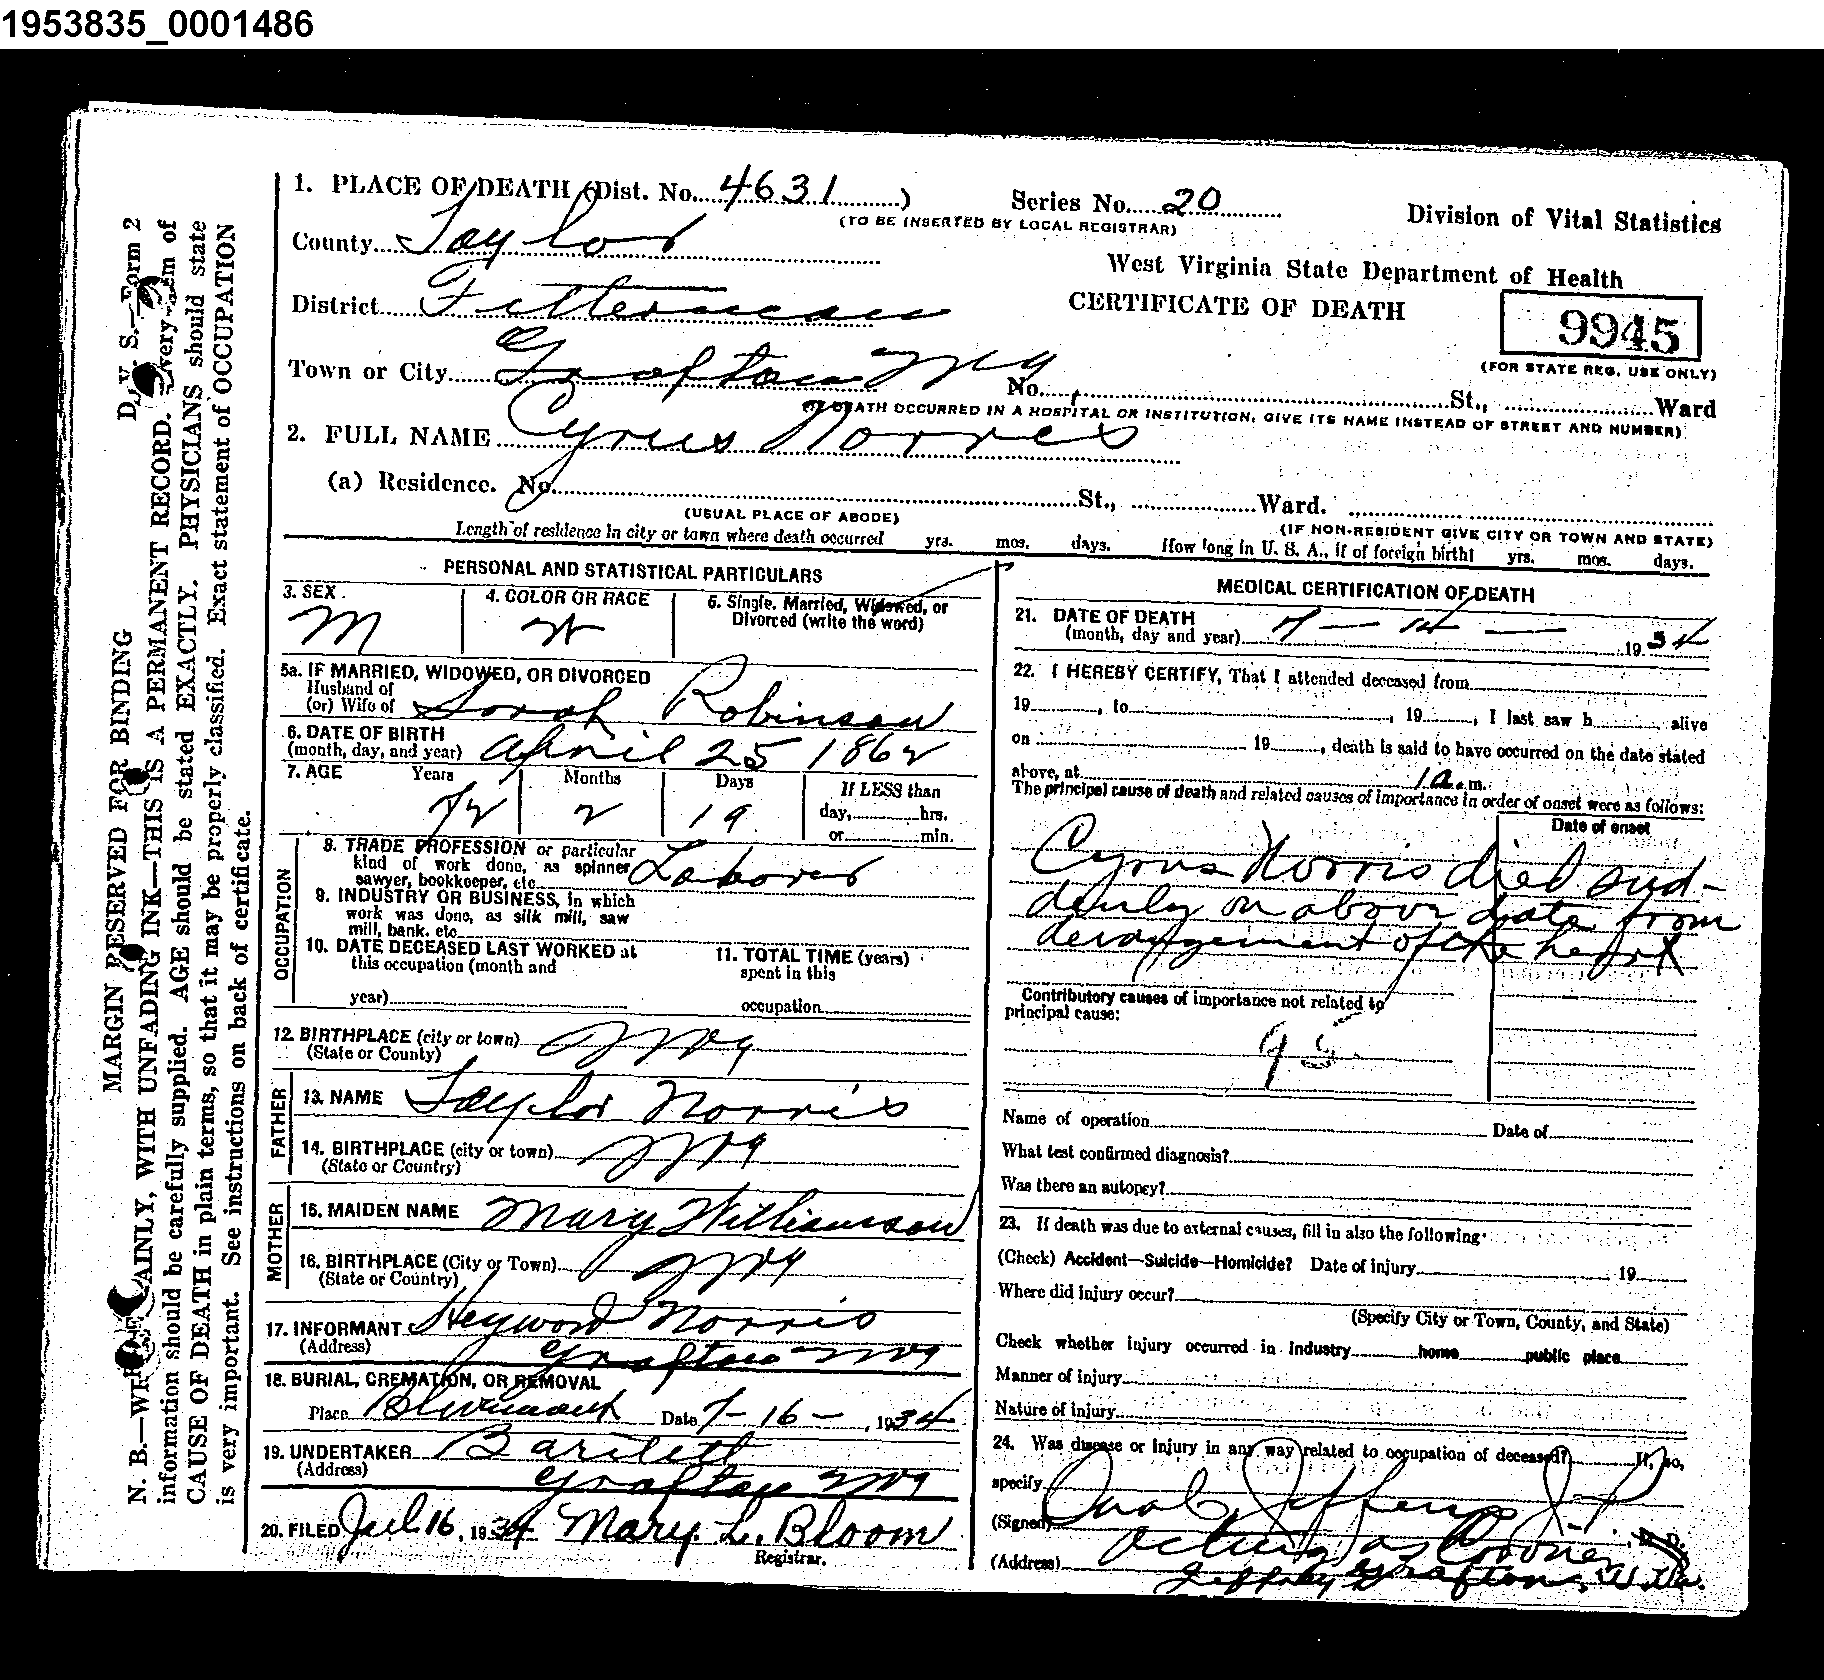 1953835_0001486
1. PLACE OF DEATH (Dist. No. 4631) Series No. 20
(TO BE INSERTED BY LOCAL REGISTRAR)
Division of Vital Statistics
County Taylor
West Virginia State Department of Health
District Fetterman
CERTIFICATE OF DEATH
9945
(FOR STATE REG. USE ONLY)
Town or City Grafton WVa No. St., Ward
(IF DEATH OCCURRED IN A HOSPITAL OR INSTITUTION, GIVE ITS NAME INSTEAD OF STREET AND NUMBER)
2. FULL NAME Cyrus Norris
(a) Residence. No. St., Ward.
(USUAL PLACE OF ABODE) (IF NON-RESIDENT GIVE CITY OR TOWN AND STATE)
Length of residence in city or town where death occurred yrs. mos. days. How long in U. S. A., if of foreign birth? yrs. mos. days.
PERSONAL AND STATISTICAL PARTICULARS
3. SEX M
4. COLOR OR RACE W
5. Single, Married, Widowed, or Divorced (write the word)
5a. IF MARRIED, WIDOWED, OR DIVORCED
Husband of
(or) Wife of Sarah Robinson
6. DATE OF BIRTH
(month, day, and year) April 25 1862
7. AGE Years Months Days If LESS than
72 2 19 day, hrs.
or min.
OCCUPATION
8. TRADE PROFESSION or particular
kind of work done, as spinner
sawyer, bookkeeper, etc. Laborer
9. INDUSTRY OR BUSINESS, in which
work was done, as silk mill, saw
mill, bank, etc.
10. DATE DECEASED LAST WORKED at
this occupation (month and
year)
11. TOTAL TIME (years)
spent in this
occupation
12. BIRTHPLACE (city or town) WVa
(State or County)
FATHER
13. NAME Taylor Norris
14. BIRTHPLACE (city or town) WVa
(State or Country)
MOTHER
15. MAIDEN NAME Mary Williamson
16. BIRTHPLACE (City or Town) WVa
(State or Country)
17. INFORMANT Heyword Norris
(Address) Grafton WVa
18. BURIAL, CREMATION, OR REMOVAL
Place Bluemont Date 7-16-, 1934
19. UNDERTAKER Bartlett
(Address) Grafton WVa
20. FILED Jul 16, 1934 Mary L. Bloom
Registrar.
MEDICAL CERTIFICATION OF DEATH
21. DATE OF DEATH
(month, day and year) 7-14- 1934
22. I HEREBY CERTIFY, That I attended deceased from
19, to, 19, I last saw h, alive
on 19, death is said to have occurred on the date stated
above, at 1 a. m.
The principal cause of death and related causes of importance in order of onset were as follows:
Date of onset
Cyrus Norris died sud-
denly on above date from
derangement of the heart
Contributory causes of importance not related to
principal cause:
95
Name of operation Date of
What test confirmed diagnosis?
Was there an autopsy?
23. If death was due to external causes, fill in also the following:
(Check) Accident—Suicide—Homicide? Date of injury 19
Where did injury occur?
(Specify City or Town, County, and State)
Check whether injury occurred in Industry home public place
Manner of injury
Nature of injury
24. Was disease or injury in any way related to occupation of deceased? If so,
specify
(Signed) Jeffers J. P. M. D.
acting as Coroner
(Address) Grafton, W. Va.
D. V. S.—Form 2
MARGIN RESERVED FOR BINDING
N. B.—WRITE PLAINLY, WITH UNFADING INK—THIS IS A PERMANENT RECORD. Every item of
information should be carefully supplied. AGE should be stated EXACTLY. PHYSICIANS should state
CAUSE OF DEATH in plain terms, so that it may be properly classified. Exact statement of OCCUPATION
is very important. See instructions on back of certificate.